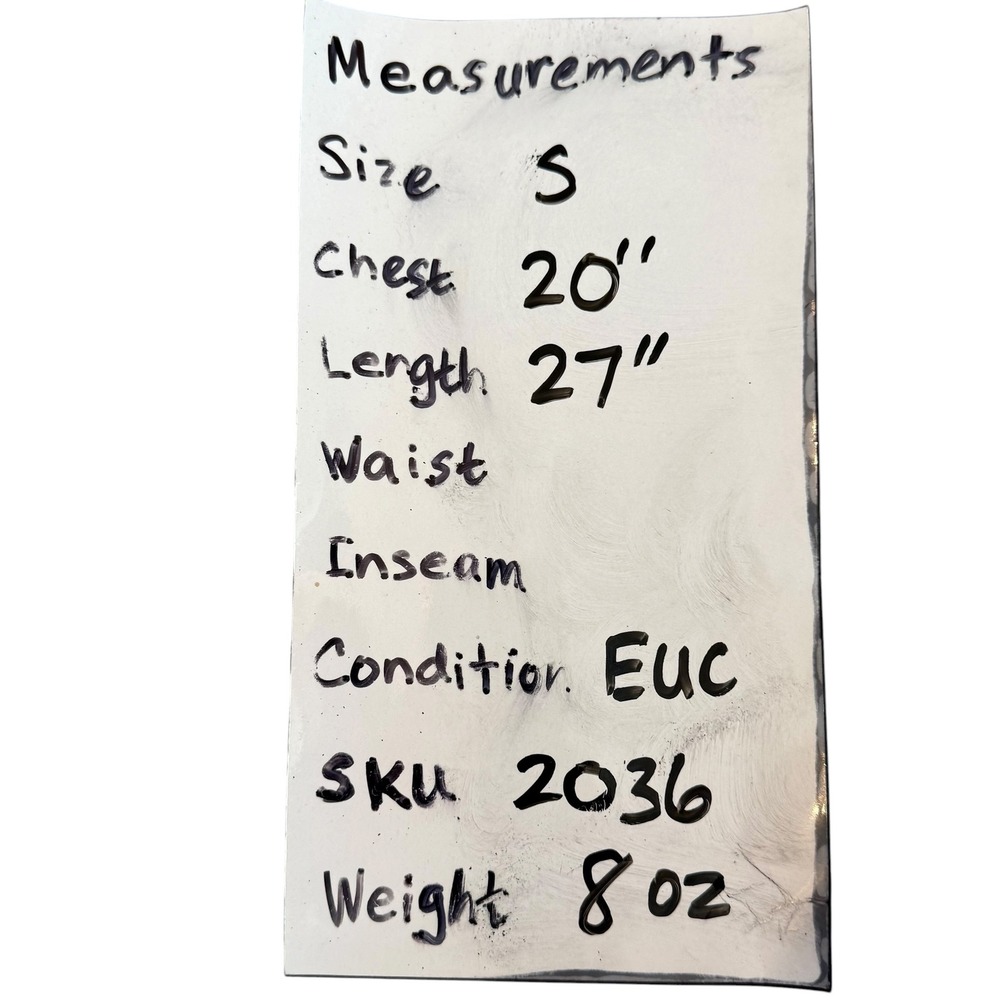 Measurements
Size S
Chest 20"
Length 27"
Waist
Inseam
Condition EUC
SKU 2036
Weight 8 oz